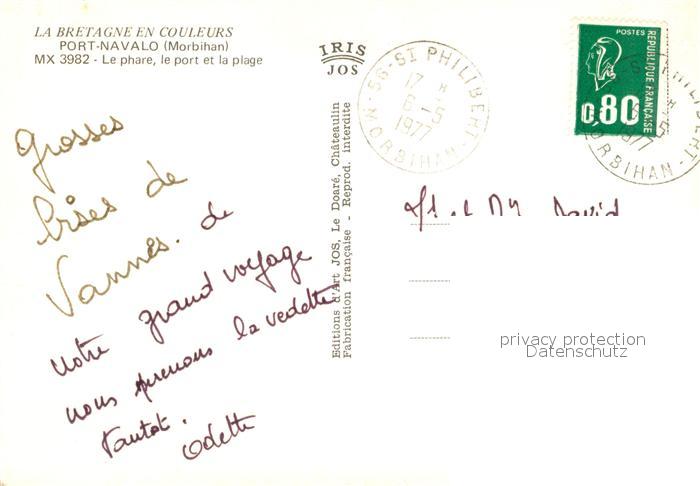 LA BRETAGNE EN COULEURS
PORT-NAVALO (Morbihan)
MX 3982 - Le phare, le port et la plage
IRIS
JOS
56 - ST PHILIBERT -
17 H
6 - 5
1977
MORBIHAN
POSTES
REPUBLIQUE FRANÇAISE
0,80
PHILIBERT -
1977
MORBIHAN
Grosses
bises de
Vannes. de
notre grand voyage
nous prenons la vedette
tantot.
Odette
Editions d'Art JOS, Le Doaré, Châteaulin
Fabrication française - Reprod. interdite
David
privacy protection
Datenschutz